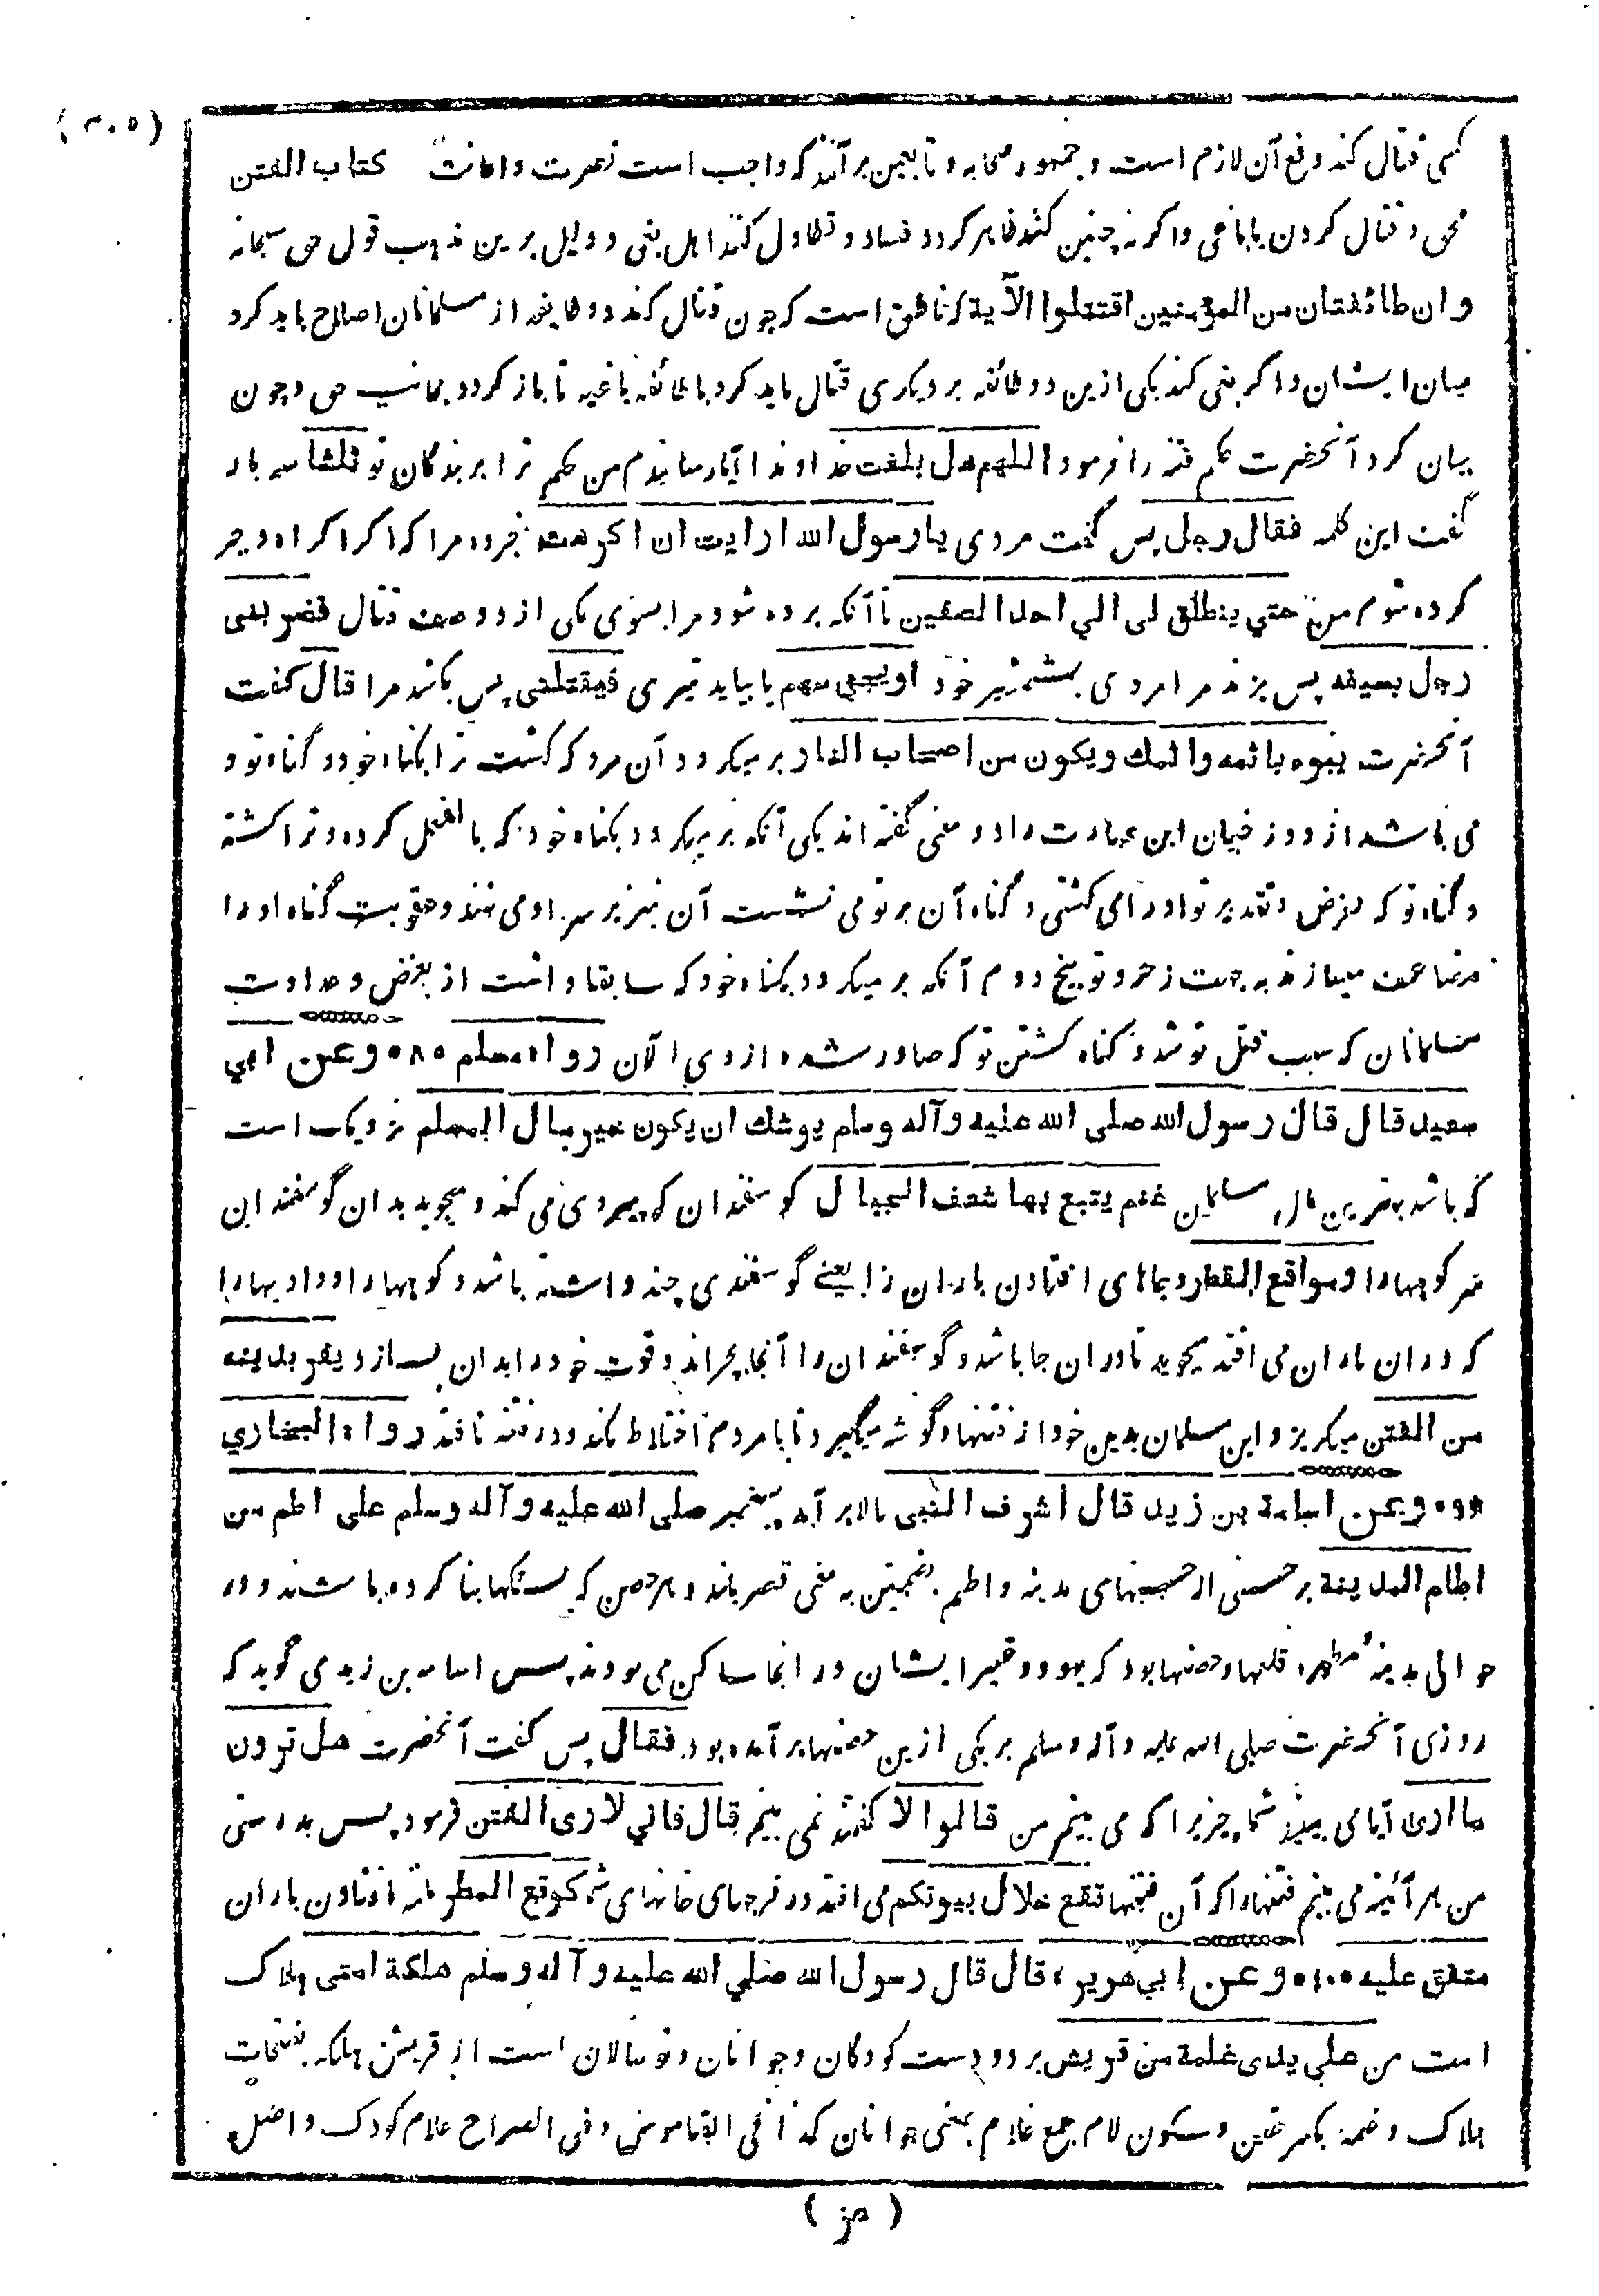 (۳۰۵)
کسی قتال کند دفع آن لازم است و جمهور صحابه و تابعین برآنند که واجب است نصرت و اعانت کتاب الفتن
محق و قتال کردن با باغی و اگر نه چنین کنند ظاهر کردد فساد و تطاول کنند اهل بغی و دلیل برین مذهب قول حق سبحانه
و ان طائفتان من المؤمنین اقتتلوا الآیة که ناطق است که چون قتال کنند دو طایفه از مسلمانان اصلاح باید کرد
میان ایشان و اگر بغی کند یکی ازین دو طائفه بر دیکری قتال باید کرد با طائفه باغیه تا باز کردد بجانب حق و چون
بیان کرد آنحضرت حکم فتنه را فرمود اللهم هل بلغت خداوندا آیا رسانیدم من حکم ترا بر بندکان تو ثلثا سه بار
گفت این کلمه فقال رجل پس گفت مردی یا رسول الله ارایت ان اکرهت خبر ده مرا که اگر اکراه و جبر
کرده شوم من حتی ینطلق لی الی احد الصفین تا آنکه برده شود مرا بسوی یکی از دو صف قتال فضربنی
رجل بسیفه پس بزند مرا مردی بشمشیر خود او یجی سهم یا بیاید تیری فیقتلنی پس بکشد مرا قال گفت
آنحضرت یبوء باثمه و اثمك و یکون من اصحاب النار بر میکردد آن مرد که کشت ترا بکناه خود و گناه تو و
می باشد از دوزخیان این عبارت را دو معنی گفته اند یکی آنکه بر میکردد بکناه خود که بالفعل کرده و ترا کشته
و گناه تو که بفرض و تقدیر تو او را می کشتی و گناه آن بر تو می نشست آن نیز بر سر او می نهند و عقوبت گناه او را
مضاعف میسازند به جهت زجر و توبیخ دوم آنکه بر میکردد بکناه خود که سابقا داشت از بغض و عداوت
مسلمانان که سبب قتل تو شد و گناه کشتن تو که صادر شده از وی الآن رواه مسلم ۵۸۰ و عن ابی
سعید قال قال رسول الله صلی الله علیه و آله و سلم یوشك ان یکون خیر مال المسلم نزدیك است
که باشد بهترین مال مسلمان غنم یتبع بها شعف الجبال کوسفندان که پیروی می کند و میجوید بدان گوسفندان
سر کوهها را و مواقع القطر و جاهای افتادن باران را یعنی گوسفندی چند داشته باشد و کوهها را و وادیها را
که در آن باران می افتد بجوید تا در ان جا باشد و گوسفندان را آنجا بچراند و قوت خود را بدان بسازد یفر بدینه
من الفتن میکریزد این مسلمان بدین خود از فتنها و گوشه میگیرد تا با مردم اختلاط نکند و در فتنه نافتد رواه البخاری
و عن اسامة بن زید قال اشرف النبی بالا بر آمد پیغمبر صلی الله علیه و آله و سلم علی اطم من
اطام المدینة بر حصنی از حصنهای مدینه و اطم بضمتین به معنی قصر باند و هر حصن که بسنکها بنا کرده باشند و در
حوالی مدینهٔ مطهره قلعها و حصنها بود که یهود و غیر ایشان در انجا ساکن می بودند پس اسامه بن زید می گوید که
روزی آنحضرت صلی الله علیه و آله و سلم بر یکی ازین حصنها بر آمده بود فقال پس کفت آنحضرت هل ترون
ما اری آیا می بینید شما چیزیرا که می بینم من قالوا لا گفتند نمی بینیم قال فانی لاری الفتن فرمود پس بدرستی
من هر آئینه می بینم فتنها را که آن فتنها تقع خلال بیوتکم می افتد در فرجهای خانهای شما کوقع المطر مانند افتادن باران
متفق علیه و عن ابی هریرة قال قال رسول الله صلی الله علیه و آله و سلم هلکة امتی هلاک
امت من علی یدی غلمة من قریش بر دو دست کودکان و جوانان و نوسالان است از قریش هلکه بفتحات
هلاک و غلمة بکسر غین و سکون لام جمع غلام بمعنی جوانان کذا فی القاموس و فی الصراح غلام کودک و اصل